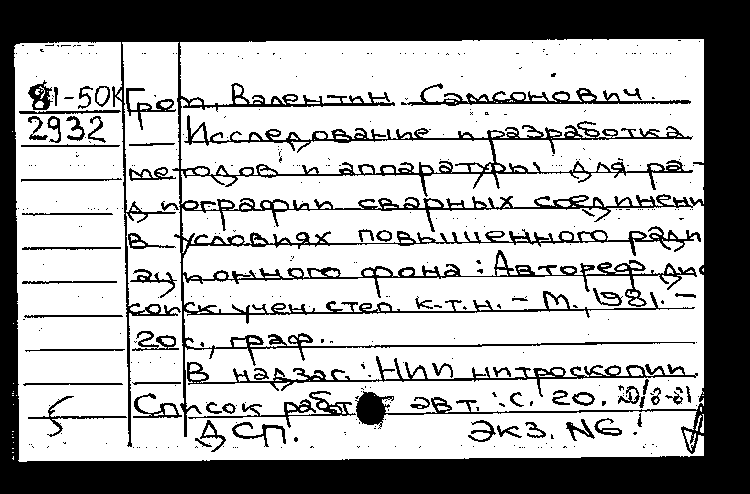 81-50К Гром, Валентин Самсонович.
2932 Исследование и разработка
методов и аппаратуры для ра-
диографии сварных соединени
в условиях повышенного ради
ационного фона: Автореф. дис
соиск. учен. степ. к.т.н. – М., 1981. –
20 с., граф.
В надзаг.: НИИ интроскопии.
Список работ авт.: с. 20. 20/8-81
ДСП. Экз. N6.